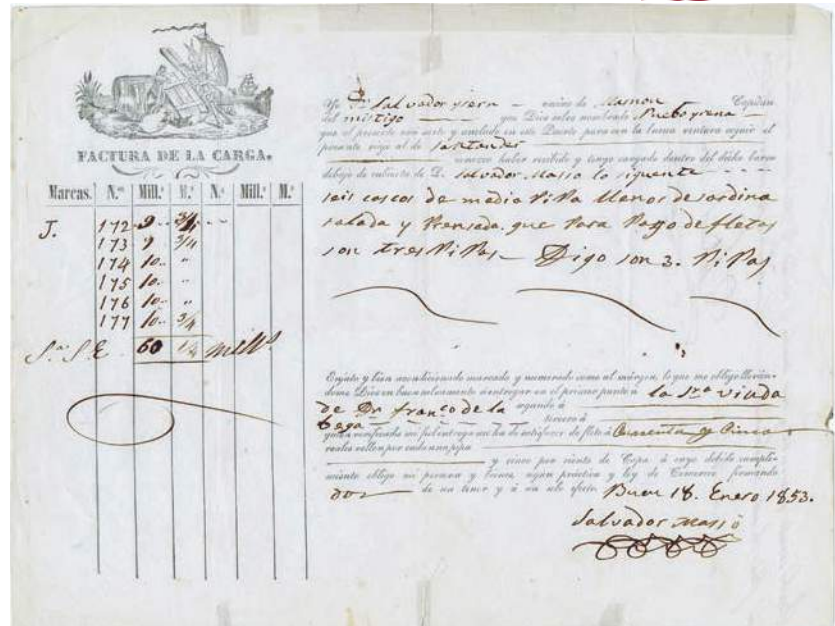 FACTURA DE LA CARGA.
Marcas. N.os Mill.s M.s N.s Mill.s M.s
J. 172 9 3/4
173 9 3/4
174 10 "
175 10 "
176 10 "
177 10 3/4
S.E. 60 1/4 mill.s
Yo Dn Salvador ysern vecino de Masnou Capitan
del mistigo que Dios salve nombrado
que al presente está surto y anclado en este Puerto para con la buena ventura seguir el
presente viaje al de santander
conozco haber recibido y tengo cargado dentro del dicho barco
debajo de cubierta de D. Salvador Massó lo siguiente
seis cascos de media PiPa llenos de sardina
salada y Prensada. que Para Pago de fletes
son tres PiPas Digo son 3. PiPas
Enjuto y bien acondicionado marcado y numerado como al márgen, lo que me obligo lleván-
dome Dios en buen salvamento á entregar en el primer punto á la Sra viuda
de Dn franco de la
y verificada mi fiel entrega me ha de satisfacer de flete á Cuarenta y Cinco
reales vellon por cada una pipa
y cinco por ciento de Capa á cuyo debido cumpli-
miento obligo mi persona y bienes, segun práctica y ley de Comercio firmando
dos de un tenor y á un solo efecto. Bueu 18. Enero 1853.
Salvador Massó